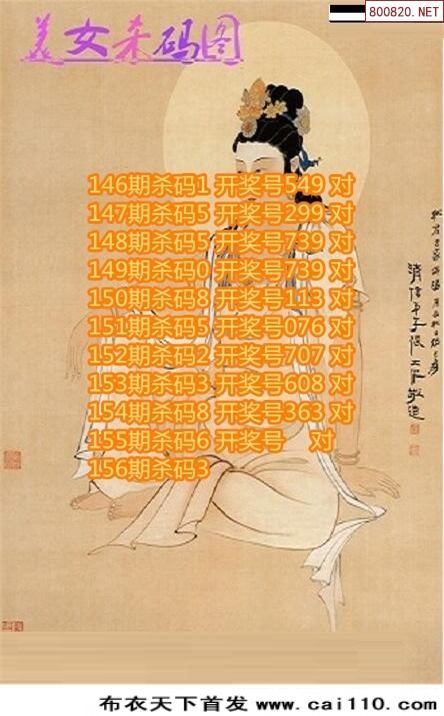 800820.NET
美女杀码图
146期杀码1 开奖号549 对
147期杀码5 开奖号299 对
148期杀码5 开奖号739 对
149期杀码0 开奖号739 对
150期杀码8 开奖号113 对
151期杀码5 开奖号076 对
152期杀码2 开奖号707 对
153期杀码3 开奖号608 对
154期杀码8 开奖号363 对
155期杀码6 开奖号 对
156期杀码3
布衣天下首发 www.cai110.com